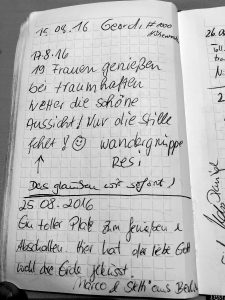 15.08.16 Geordi
17.8.16
19 Frauen genießen
bei traumhaften
Wetter die schöne
Aussicht! Nur die Stille
fehlt! ☺ wandergruppe
↑ Resi
Das glauben wir sofort!
25.08.2016
Ein toller Platz zum genießen &
Abschalten. Hier hat der liebe Gott
wohl die Erde geküsst.
Marco & Steffi aus Berlin
26.0